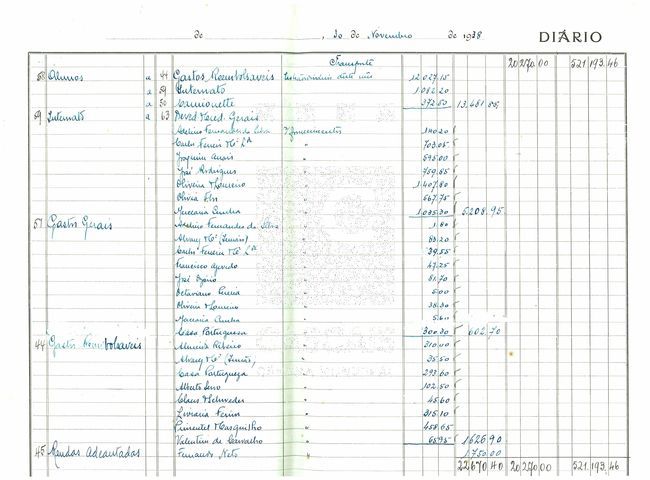 de , 30 de Novembro de 1938 DIÁRIO
Transporte 20 270.00 521.193.46
58 Alunos a 44 Gastos Reembolsaveis 12 027.15
a 59 Internato 1 082.20
a 50 Camionette 372.50 13,481.85
59 Internato a 63 Deved. Cred. Gerais
Adelino Fernandes da Silva s/ fornecimentos 140.20
Carlos Ferreira & Cª Lda " 703.05
Joaquim " 595.00
José Rodrigues " 759.85
Oliveira & Lourenço " 1 407.80
Olivia " 567.75
Mercearia Cunha " 1 035.30 5208.95
51 Gastos Gerais Adelino Fernandes da Silva " 1.80
Alvarez & Cª (Irmão) " 83.20
Carlos Ferreira & Cª Lda " 39.55
Francisco Azevedo " 47.25
José Osório " 81.70
Octaviano " 5.00
Oliveira & Lourenço " 38.30
Mercearia Cunha " 5.60
Casa Portuguesa " 300.30 602.70
44 Gastos Reembolsaveis Almeida Ribeiro " 310.40
Alvarez & Cª (Irmão) " 35.50
Casa Portuguesa " 293.60
Alberto " 102.50
Claus & Schweder " 45.60
Livraria Ferin " 315.10
Pimentel & Casquilho " 458.65
Valentim de Carvalho " 65.95 1626.90
45 Rendas Adeantadas Fernando Neto " 1.750.00
22670.40 20 270.00 521.193.46